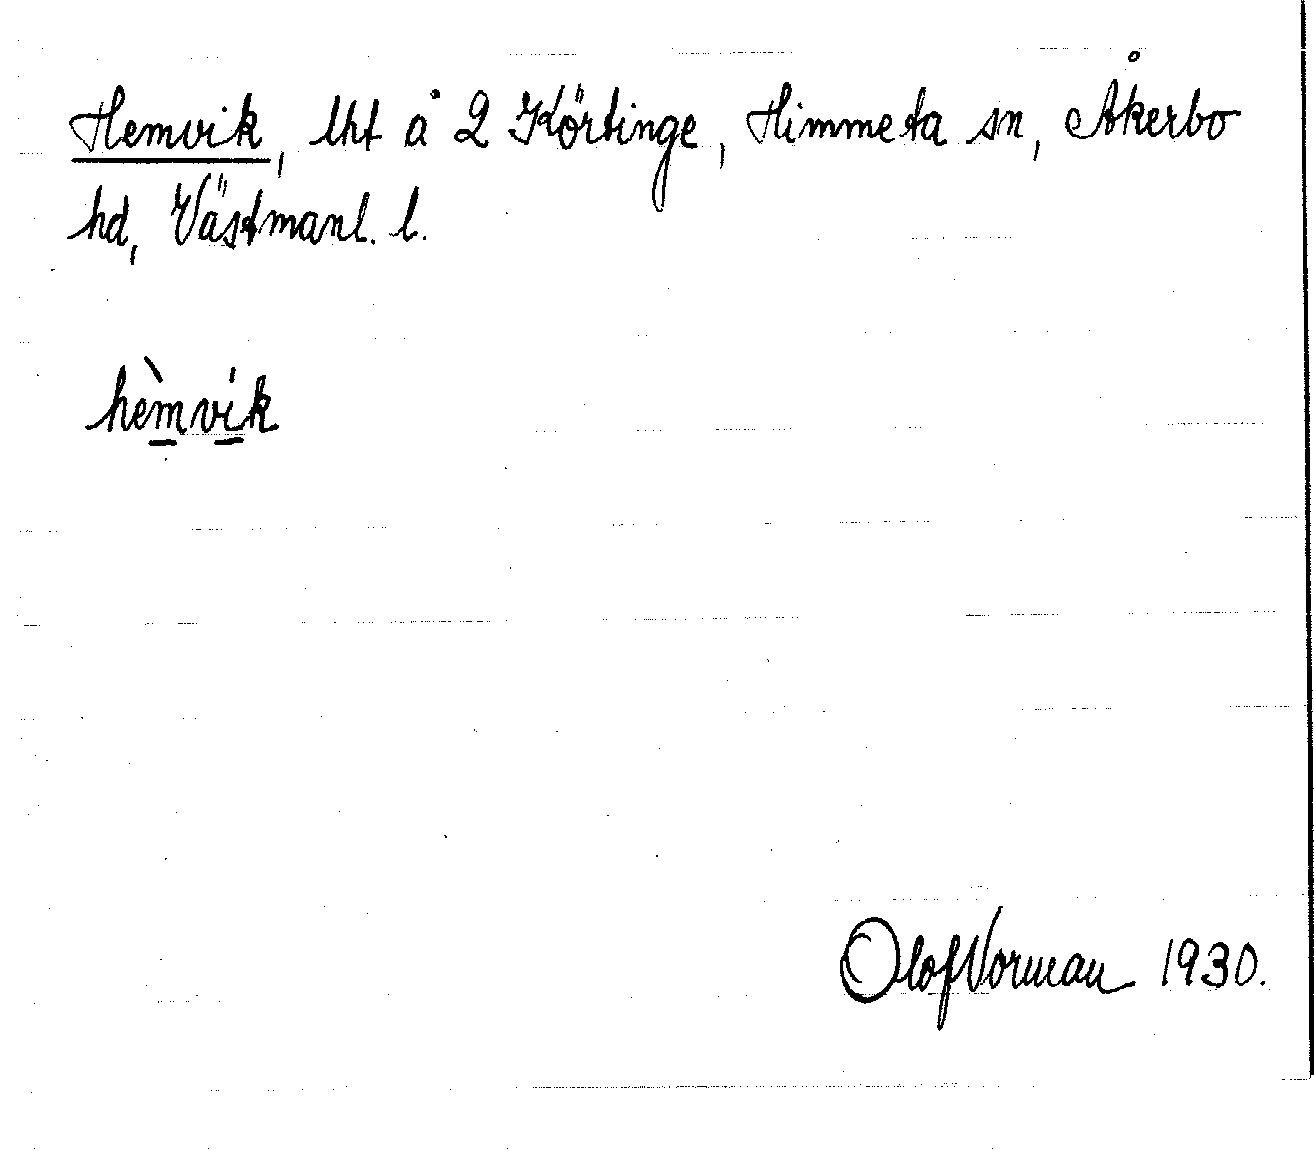 Hemvik, lht å 2 Körtinge, Himmeta sn, Åkerbo
hd, Västmanl. l.
hèmvík
Olof Vorman 1930.